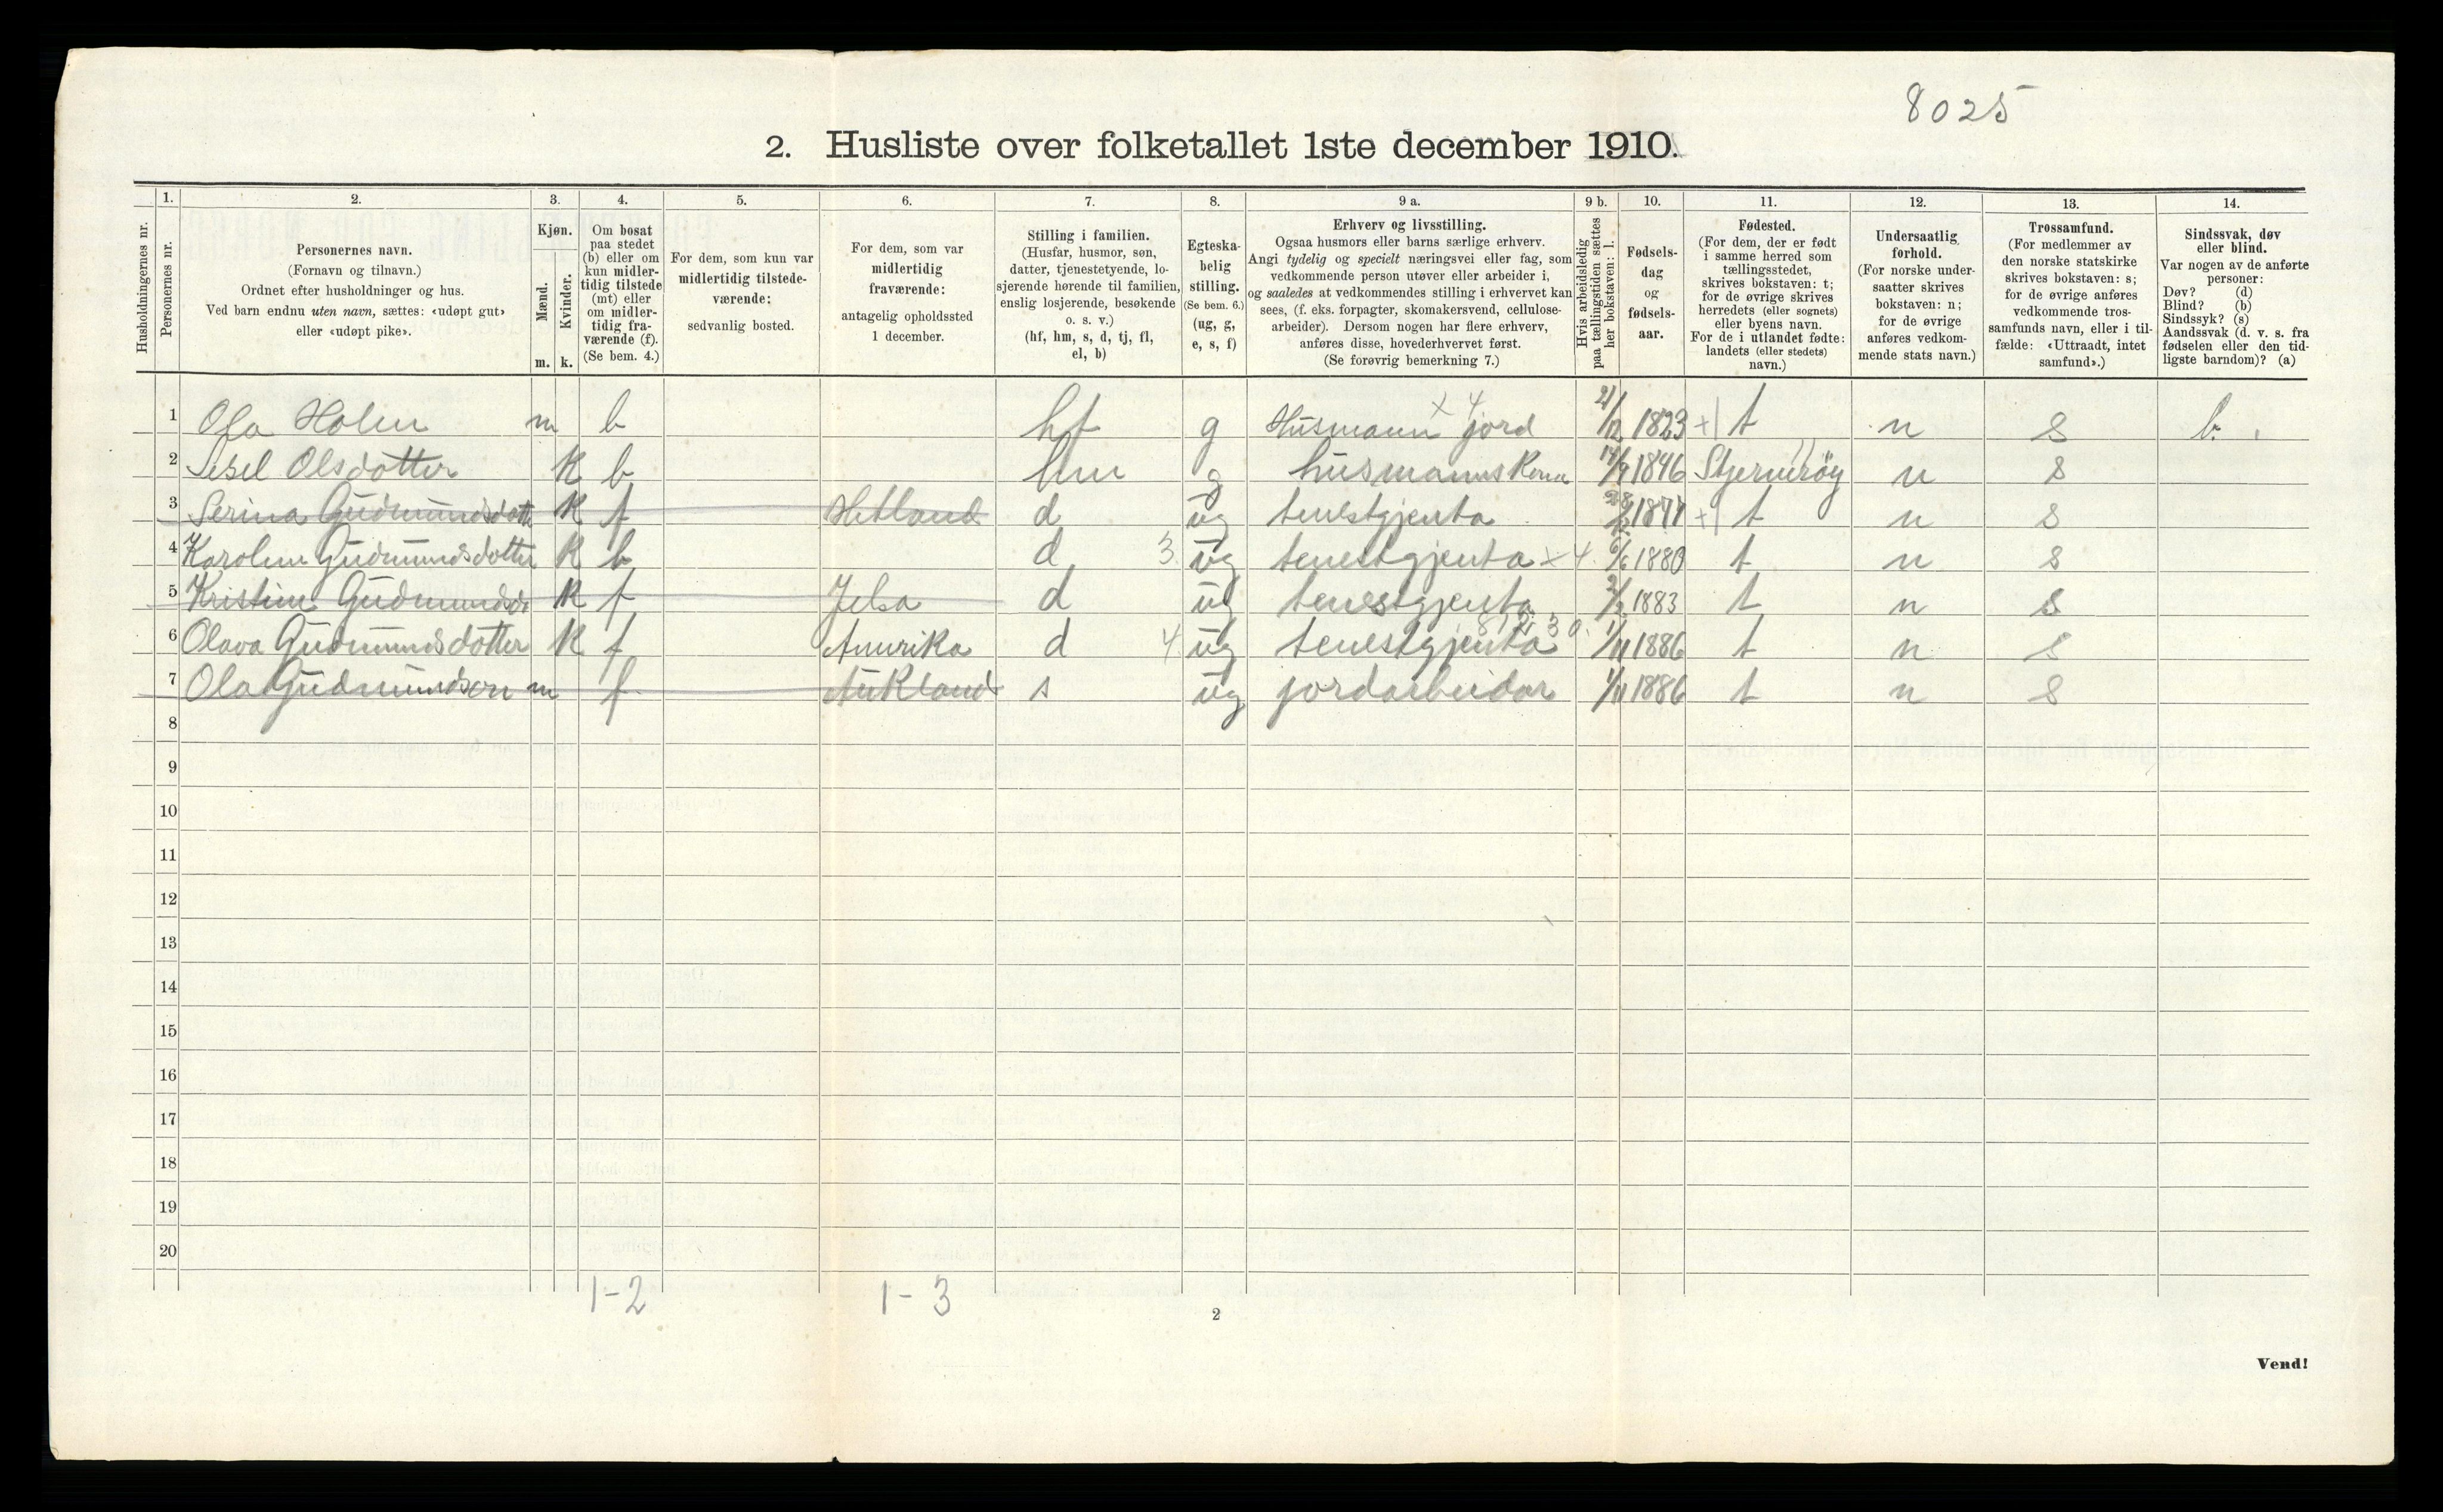 8025
2. Husliste over folketallet 1ste december 1910.
Husholdningernes nr.
1.
Personernes nr.
2.
Personernes navn.
(Fornavn og tilnavn.)
Ordnet efter husholdninger og hus.
Ved barn endnu uten navn, sættes: «udøpt gut»
eller «udøpt pike».
3.
Kjøn.
Mænd.
m.
Kvinder.
k.
4.
Om bosat
paa stedet
(b) eller om
kun midler-
tidig tilstede
(mt) eller
om midler-
tidig fra-
værende (f).
(Se bem. 4.)
5.
For dem, som kun var
midlertidig tilstede-
værende:
sedvanlig bosted.
6.
For dem, som var
midlertidig
fraværende:
antagelig opholdssted
1 december.
7.
Stilling i familien.
(Husfar, husmor, søn,
datter, tjenestetyende, lo-
sjerende hørende til familien,
enslig losjerende, besøkende
o. s. v.)
(hf, hm, s, d, tj, fl,
el, b)
8.
Egteska-
belig
stilling.
(Se bem. 6.)
(ug, g,
e, s, f)
9 a.
Erhverv og livsstilling.
Ogsaa husmors eller barns særlige erhverv.
Angi tydelig og specielt næringsvei eller fag, som
vedkommende person utøver eller arbeider i,
og saaledes at vedkommendes stilling i erhvervet kan
sees, (f. eks. forpagter, skomakersvend, cellulose-
arbeider). Dersom nogen har flere erhverv,
anføres disse, hovederhvervet først.
(Se forøvrig bemerkning 7.)
9 b.
Hvis arbeidsledig
paa tællingstiden sættes
her bokstaven: l.
10.
Fødsels-
dag
og
fødsels-
aar.
11.
Fødested.
(For dem, der er født
i samme herred som
tællingsstedet,
skrives bokstaven: t;
for de øvrige skrives
herredets (eller sognets)
eller byens navn.
For de i utlandet fødte:
landets (eller stedets)
navn.)
12.
Undersaatlig
forhold.
(For norske under-
saatter skrives
bokstaven: n;
for de øvrige
anføres vedkom-
mende stats navn.)
13.
Trossamfund.
(For medlemmer av
den norske statskirke
skrives bokstaven: s;
for de øvrige anføres
vedkommende tros-
samfunds navn, eller i til-
fælde: «Uttraadt, intet
samfund».)
14.
Sindssvak, døv
eller blind.
Var nogen av de anførte
personer:
Døv? (d)
Blind? (b)
Sindssyk? (s)
Aandssvak (d. v. s. fra
fødselen eller den tid-
ligste barndom)? (a)
1 Ola Holm m b hf g Husmann x 4 jord 21/12 1823 +1 t n s b.
2 Sesel Olsdotter K b hm g husmannskona 14/9 1846 Stjernerøy n s
3 Serina Gudmundsdotter K f Hetland d ug tenestgjenta 1877 +1 t n s
4 Karoline Gudmundsdotter K b d 3. ug tenestgjenta x 4. 6/6 1880 t n s
5 Kristine Gudmundsd K f Jelsa d ug tenestgjenta 2/2 1883 t n s
6 Olava Gudmundsdotter K f Amerika d 4. ug tenestgjenta 1/11 1886 t n s
7 Ola Gudmundson m f Aukland s ug jordarbeidar 1/11 1886 t n s
8
9
10
11
12
13
14
15
16
17
18
19
20
1-2 1-3
2
Vend!